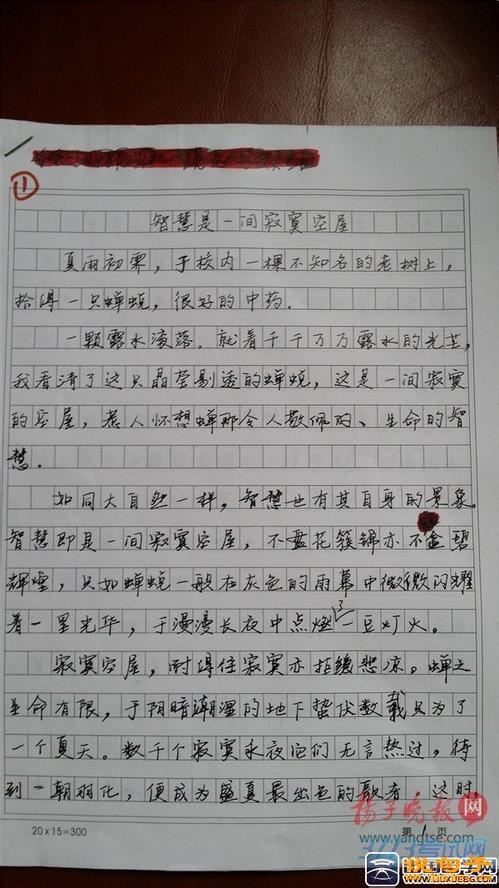 ①
智慧是一间寂寞空屋
夏雨初霁，于校内一棵不知名的老树上，
拾得一只蝉蜕，很好的中药。
一颗露水滚落，就着千千万万露水的光芒，
我看清了这只晶莹剔透的蝉蜕，这是一间寂寞
的空屋，惹人怀想蝉那令人敬佩的、生命的智
慧。
如同大自然一样，智慧也有其自身的景象。
智慧即是一间寂寞空屋，不花簇锦亦不金碧
辉煌，只如蝉蜕一般在灰色的雨幕中微微闪耀
着一星光华，于漫漫长夜中点燃了一豆灯火。
寂寞空屋，耐得住寂寞亦拒绝悲凉。蝉之
生命有限，于阴暗潮湿的地下蛰伏数载只为了
一个夏天。数千个寂寞永夜它们无言熬过，待
到一朝羽化，便成为盛夏最出色的歌者，这时
20×15=300
第1页
扬子晚报网
www.yangtse.com